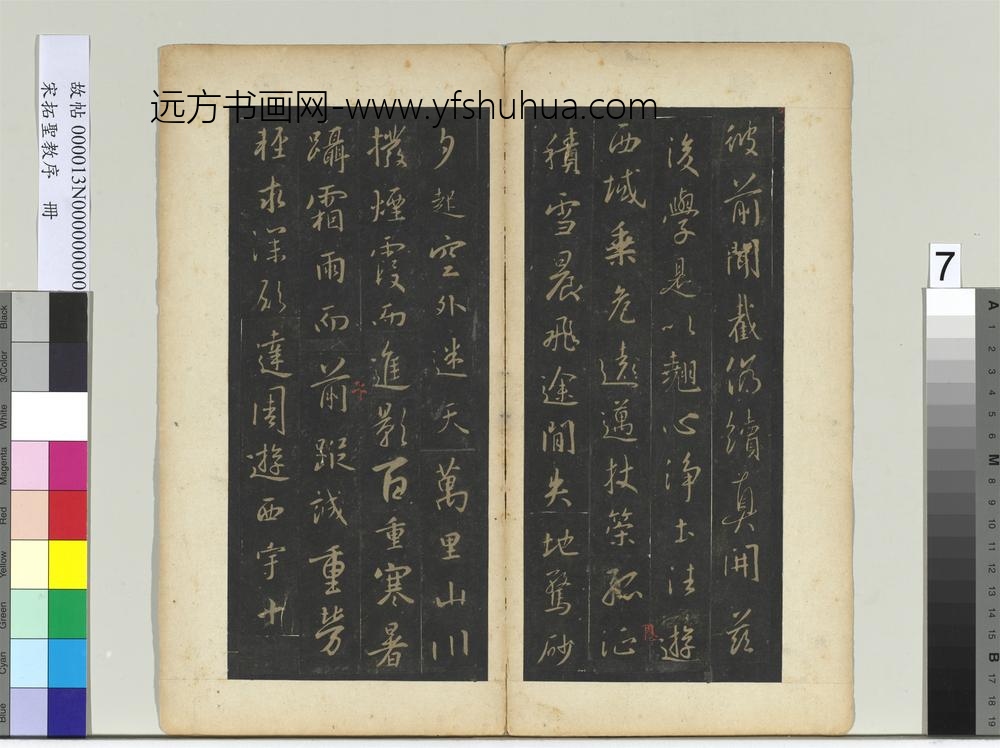 远方书画网-www.yfshuhua.com
故帖 000013N000000000
宋拓聖教序 冊
彼前聞截偽續真開茲
後學是以翹心淨土法遊
西域乘危遠邁杖策孤征
積雪晨飛途間失地驚砂
夕起空外迷天萬里山川
撥煙霞而進影百重寒暑
躡霜雨而前蹤誠重勞
輕求深願達周遊西宇十
7
Black
3/Color
White
Magenta
Red
Yellow
Green
Cyan
Blue
A
1
2
3
4
5
6
M
8
9
10
11
12
13
14
15
B
17
18
19